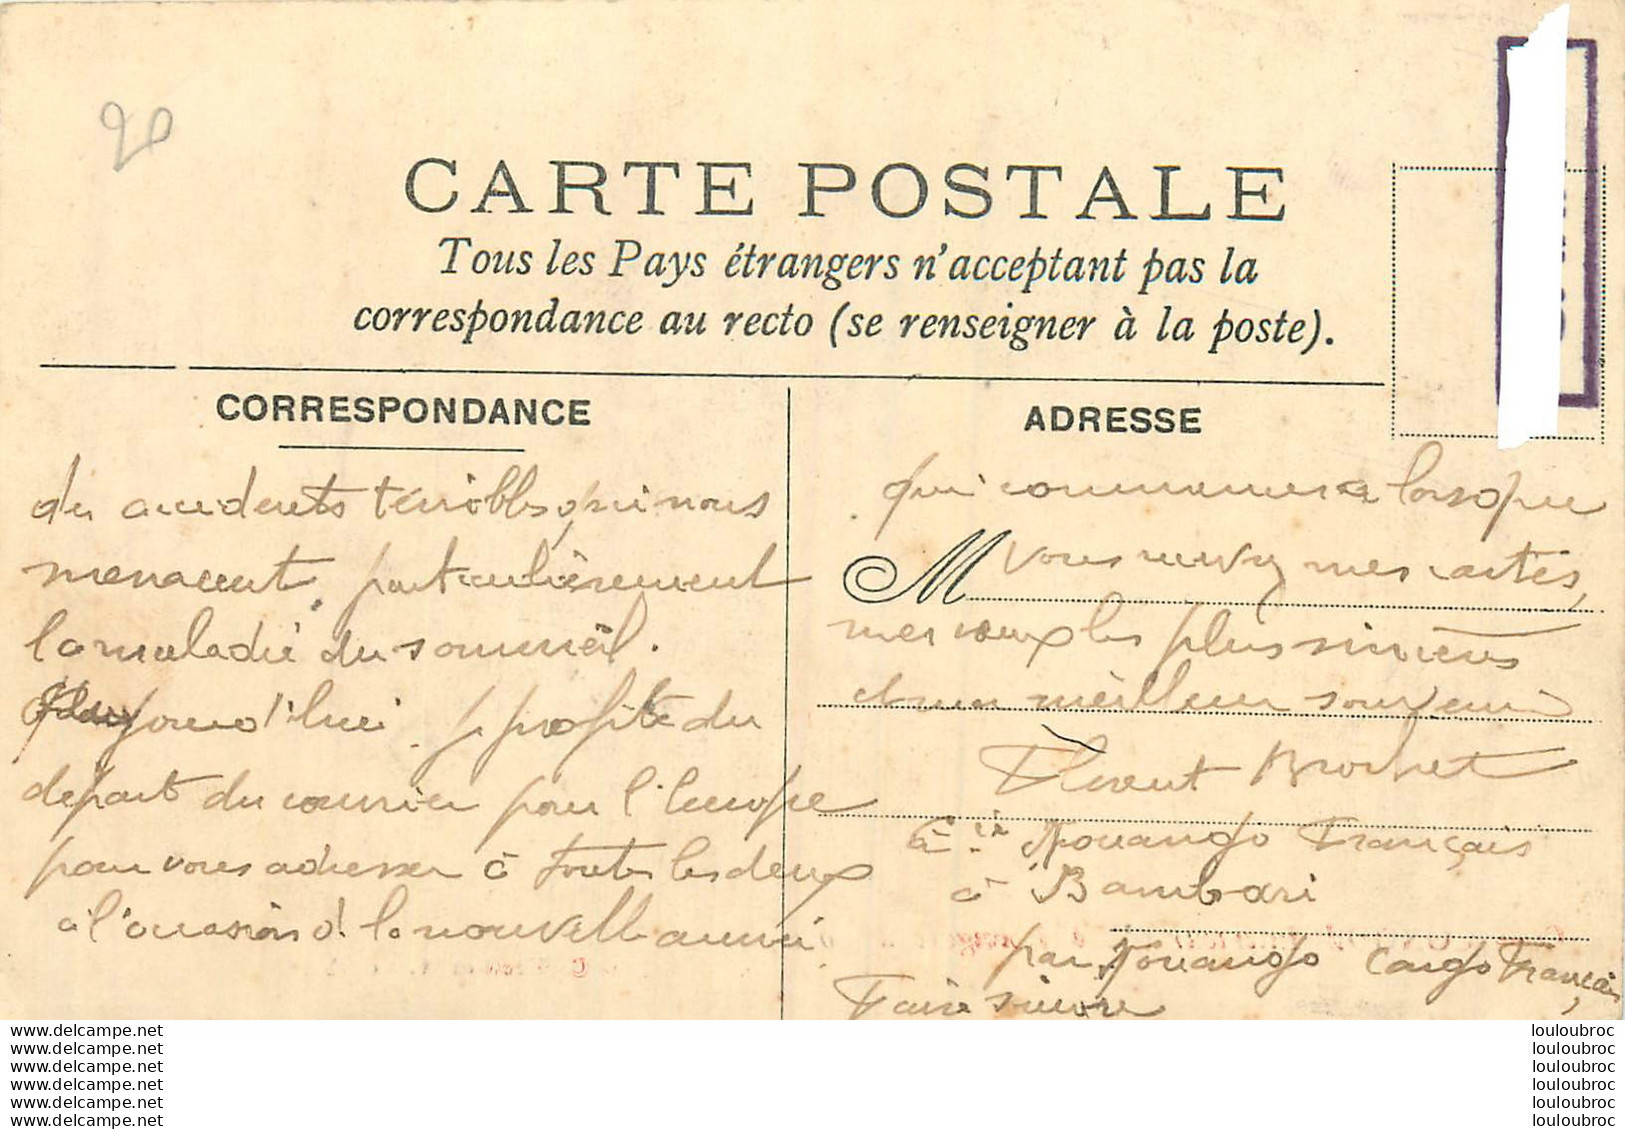 20
CARTE POSTALE
Tous les Pays étrangers n'acceptant pas la
correspondance au recto (se renseigner à la poste).
CORRESPONDANCE
ADRESSE
des accidents terribles qui nous
menacent, particulièrement
la maladie du sommeil.
jourd'hui je profite du
départ du courrier pour l'Europe
pour vous adresser à toutes les deux
à l'occasion d la nouvelle année
qui commencera lorsque
M
vous recevrez mes cartes,
mes voeux les plus sincères
et mon meilleur souvenir
Florent Brochet
Cie Kouango Français
à Bambari
par Kouango Congo Français
Faire suivre
www.delcampe.net
www.delcampe.net
www.delcampe.net
www.delcampe.net
www.delcampe.net
www.delcampe.net
louloubroc
louloubroc
louloubroc
louloubroc
louloubroc
louloubroc